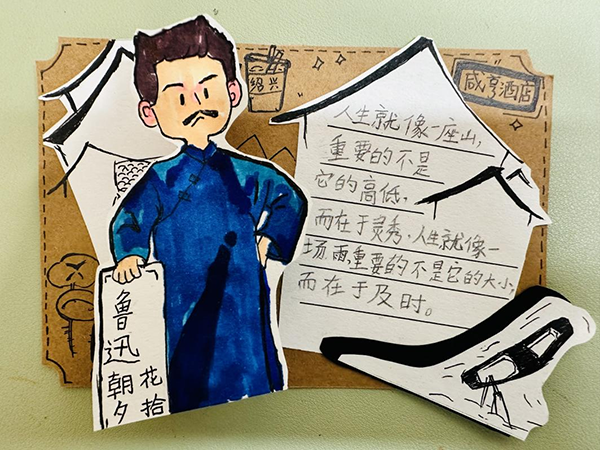 绍兴
咸亨酒店
人生就像一座山,
重要的不是
它的高低,
而在于灵秀,人生就像一
场雨,重要的不是它的大小,
而在于及时。
鲁迅
朝花
夕拾